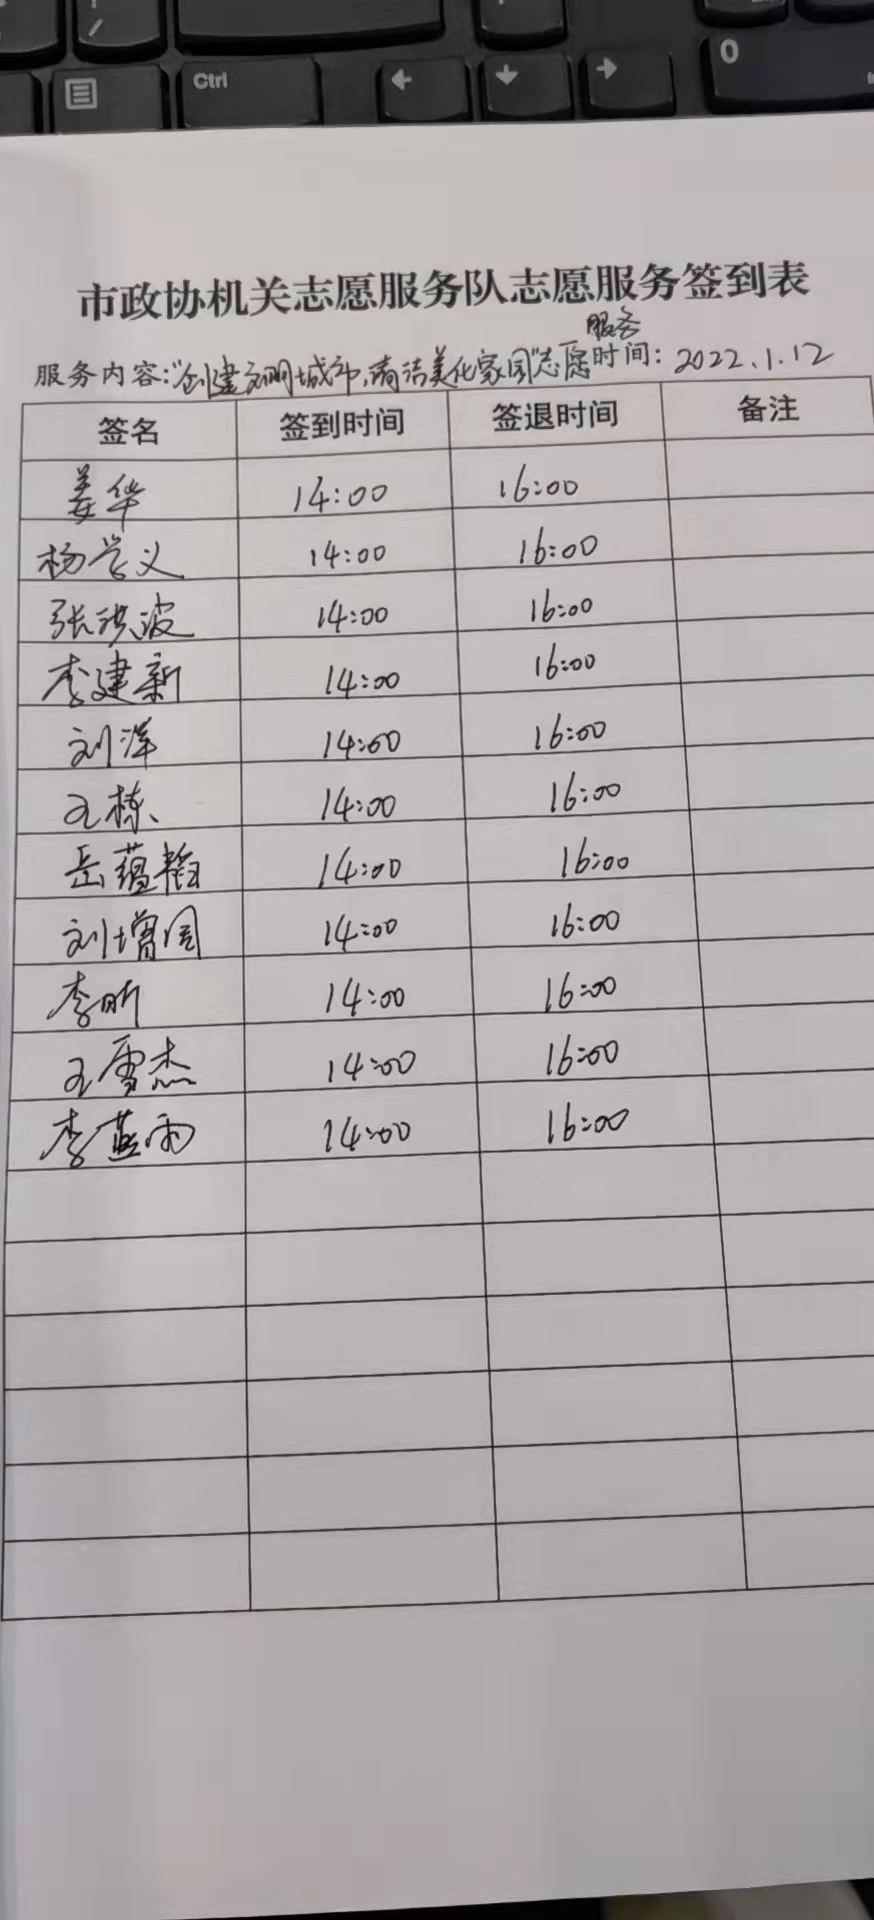 Ctrl
0
市政协机关志愿服务队志愿服务签到表
服务内容:"创建文明城市,清洁美化家园"志愿服务 时间: 2022.1.12
签名 签到时间 签退时间 备注
姜华 14:00 16:00
杨学义 14:00 16:00
张洪波 14:00 16:00
李建新 14:00 16:00
刘洋 14:00 16:00
王栋 14:00 16:00
岳蕴韬 14:00 16:00
刘增国 14:00 16:00
李昕 14:00 16:00
王雪杰 14:00 16:00
李燕雨 14:00 16:00